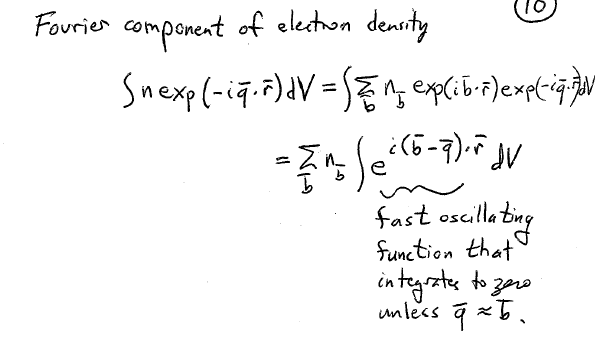 10
Fourier component of electron density
∫ n exp(-i q̄·r̄) dV = ∫ Σ_b̄ n_b̄ exp(i b̄·r̄) exp(-i q̄·r̄) dV
= Σ_b̄ n_b̄ ∫ e^{i(b̄-q̄)·r̄} dV
fast oscillating
function that
integrates to zero
unless q̄ ≈ b̄.